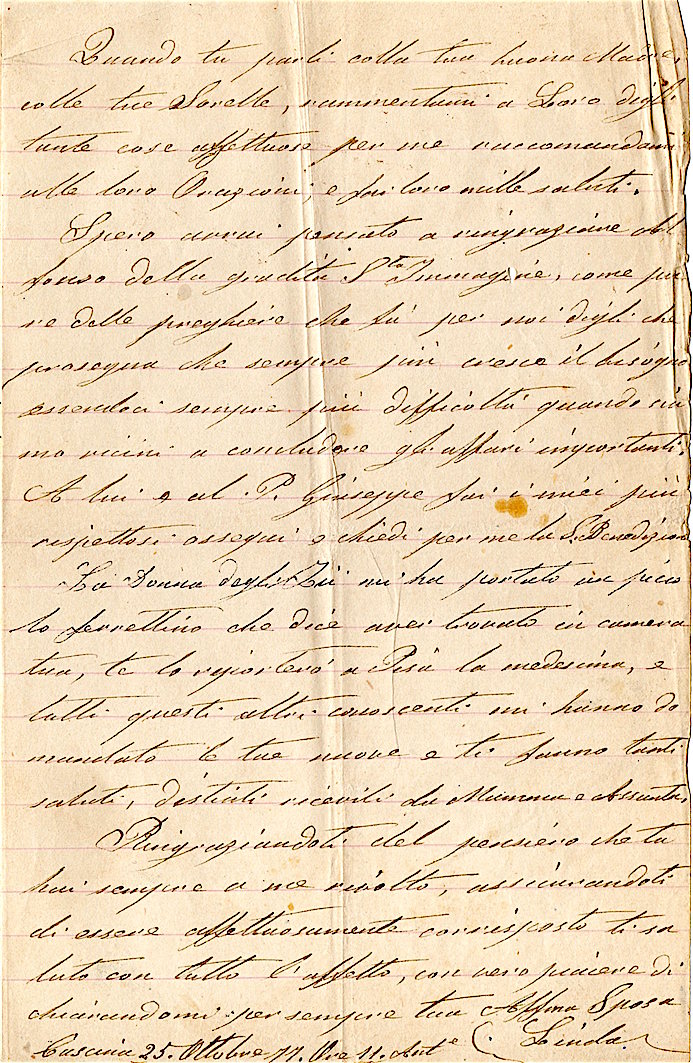 Quando tu parli colla tua buona Madre,
colle tue Sorelle, rammentami a Loro digli
tante cose affettuose per me raccomandami
alle loro Orazioni, e fai loro mille saluti.
Spero avrai pensato a ringraziare
della gradita S.ta Immagine, come pu
re delle preghiere che fa' per noi digli che
prosegua che sempre più cresce il bisogno
essendoci sempre più difficoltà quando sia
mo vicini a concludere gli affari importanti.
A lui e al P. Giuseppe fai i miei più
rispettosi ossequi e chiedi per me la S. Benedizion
La Donna degli Zii mi ha portato un picco
lo ferrettino che dice aver trovato in camera
tua, te lo riporterò a Pisa la medesima, e
tutti questi altri conoscenti mi hanno do
mandato le tue nuove e ti fanno tanti
saluti, distinti ricevili da Mamma e Assunta,
Ringraziandoti del pensiero che tu
hai sempre a me rivolto, assicurandoti
di essere affettuosamente corrisposto ti sa
luto con tutto l'affetto, con vero piacere di
chiarandomi per sempre tua Affma Sposa
Cascina 25. Ottobre 77. Ore 11. Ant.e Linda